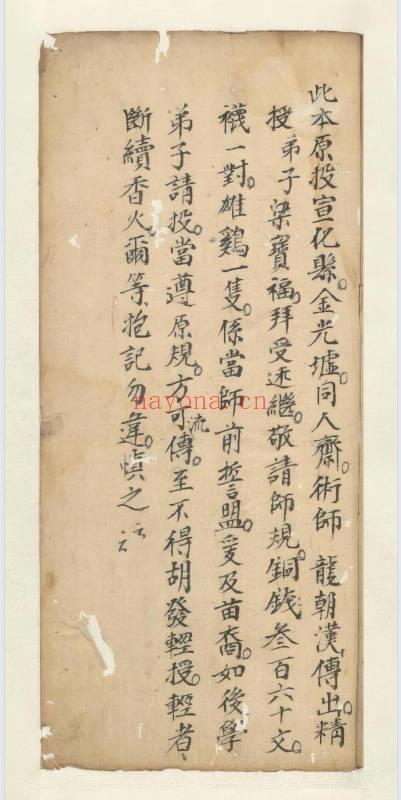 此本原投宣化縣。金光墟。同人齋。術師 龍朝漢。傳出。精
授弟子梁寶福。拜受述繼。敬請師規。銅錢叁百六十文。
襪一對。雄鷄一隻。係當師前誓盟。爰及苗裔。如後學
弟子請投。當遵原規。方可流傳。至不得胡發輕授。輕者
斷續香火。爾等抱記勿違。慎之
nayona.cn